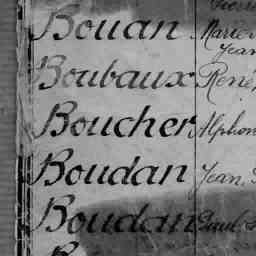 Bouan Marie
Jean
Boubaux René,
Boucher Alphon
Boudan Jean,
Boudan Paul